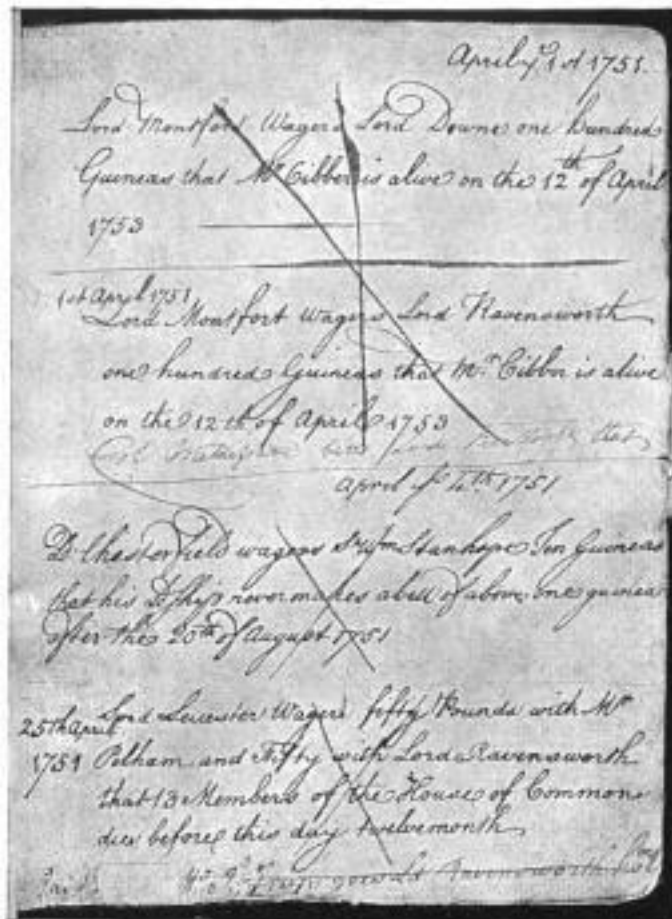 April ye 1st 1751.
Lord Montford Wagers Lord Downe one hundred
Guineas that Mr Cibber is alive on the 12th of April
1753
1st April 1751
Lord Montfort Wagers Lord Ravensworth
one hundred Guineas that Mr. Cibber is alive
on the 12th of April 1753
that
April ye 4th 1751
Ld. Chesterfield wagers Sr Wm Stanhope Ten Guineas
that his Ldship never makes a bett of above one guinea
after the 20th of August 1751
25th April
1751
Lord Leicester Wagers fifty Pounds with Mr
Pelham and Fifty with Lord Ravensworth
that 13 Members of the House of Commons
dies before this day twelvemonth
Paid Ld Ravensworth